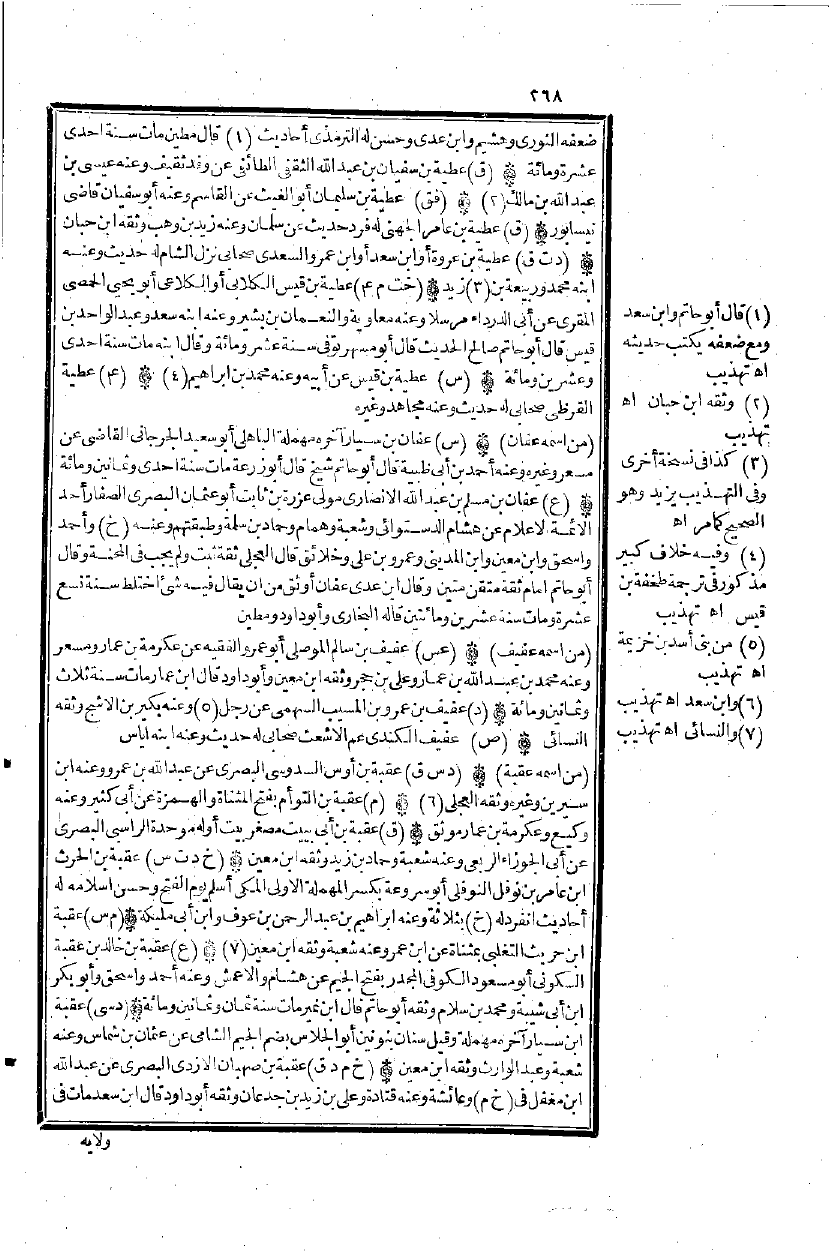 ٢٦٨
ضعفه الثورى وهشيم وابن عدى وحسن له الترمذى أحاديث (١) قال مطين مات سنة احدى
عشرة ومائة (ق) عطية بن سفيان بن عبد الله الثقفى الطائفى عن وفد ثقيف وعنه عيسى بن
عبد الله بن مالك (٢) (فق) عطية بن سليمان أبو الغيث عن القاسم وعنه أبو سفيان قاضى
نيسابور (ق) عطية بن عامر الجهنى له فرد حديث عن سلمان وعنه زيد بن وهب وثقه ابن حبان
(د ت ق) عطية بن عروة أو ابن سعد أو ابن عمرو السعدى صحابى نزل الشام له حديث وعنه
ابنه محمد وربيعة بن (٣) زيد (خت م ٤) عطية بن قيس الكلابى أو الكلاعى أبو يحيى الحمصى
المقرى عن أبى الدرداء مرسلا وعنه معاوية والنعمان بن بشير وعنه ابنه سعد وعبد الواحد بن
قيس قال أبو حاتم صالح الحديث قال أبو مسهر توفى سنة عشر ومائة وقال ابنه مات سنة احدى
وعشرين ومائة (س) عطية بن قيس عن أبيه وعنه محمد بن ابراهيم (٤) (٤) عطية
القرظى صحابى له حديث وعنه مجاهد وغيره
(من اسمه عفان) (س) عفان بن سيار آخره مهملة الباهلى أبو سعيد الجرجانى القاضى عن
مسعر وغيره وعنه أحمد بن أبى طيبة قال أبو حاتم شيخ قال أبو زرعة مات سنة احدى وثمانين ومائة
(ع) عفان بن مسلم بن عبد الله الانصارى مولى عزرة بن ثابت أبو عثمان البصرى الصفار أحد
الائمة الاعلام عن هشام الدستوائى وشعبة وهمام وحماد بن سلمة وطبقتهم وعنه (خ) وأحمد
واسحق وابن معين وابن المدينى وعمرو بن على وخلائق قال العجلى ثقة ثبت ولم يجب فى المحنة وقال
أبو حاتم امام ثقة متقن متين وقال ابن عدى عفان أوثق من ان يقال فيه شئ اختلط سنة تسع
عشرة ومات سنة عشرين ومائتين قاله البخارى وأبو داود ومطين
(من اسمه عفيف) (عس) عفيف بن سالم الموصلى أبو عمرو الفقيه عن عكرمة بن عمار ومسعر
وعنه محمد بن عبد الله بن عمار وعلى بن حجر وثقه ابن معين وأبو داود قال ابن عمار مات سنة ثلاث
وثمانين ومائة (د) عفيف بن عمرو بن المسيب السهمى عن رجل (٥) وعنه بكير بن الاشج وثقه
النسائى (ص) عفيف الكندى عم الاشعث صحابى له حديث وعنه ابنه اياس
(من اسمه عقبة) (د س ق) عقبة بن أوس السدوسى البصرى عن عبد الله بن عمرو وعنه ابن
سيرين وغيره وثقه العجلى (٦) (م) عقبة بن التوأم بفتح المثناة والهمزة عن أبى كثير وعنه
وكيع وعكرمة بن عمار موثق (ق) عقبة بن أبى بييت مصغر بيت أوله موحدة الراسبى البصرى
عن أبى الجوزاء الربعى وعنه شعبة وحماد بن زيد وثقه ابن معين (خ د ت س) عقبة بن الحرث
ابن عامر بن نوفل النوفلى أبو سروعة بكسر المهملة الاولى المكى أسلم يوم الفتح وحسن اسلامه له
أحاديث انفرد له (خ) بثلاثة وعنه ابراهيم بن عبد الرحمن بن عوف وابن أبى مليكة (م س) عقبة
ابن حريث التغلبى بمثناة عن ابن عمر وعنه شعبة وثقه ابن معين (٧) (ع) عقبة بن خالد بن عقبة
السكونى أبو مسعود الكوفى المجدر بفتح الجيم عن هشام والاعمش وعنه أحمد واسحق وأبو بكر
ابن أبى شيبة ومحمد بن سلام وثقه أبو حاتم قال ابن نمير مات سنة ثمان وثمانين ومائة (د سى) عقبة
ابن سيار آخره مهملة وقيل سنان بنونين أبو الجلاس بضم الجيم الشامى عن عثمان بن شماس وعنه
شعبة وعبد الوارث وثقه ابن معين (خ م د ق) عقبة بن صهبان الازدى البصرى عن عبد الله
ابن مغفل فى (خ م) وعائشة وعنه قتادة وعلى بن زيد بن جدعان وثقه أبو داود قال ابن سعد مات فى
ولاية
(١) قال أبو حاتم وابن سعد
ومع ضعفه يكتب حديثه
اه تهذيب
(٢) وثقه ابن حبان اه
تهذيب
(٣) كذا فى نسخة أخرى
وفى التهذيب يزيد وهو
الصحيح كما مر اه
(٤) وفيه خلاف كبير
مذكور فى ترجمة طخفة بن
قيس اه تهذيب
(٥) من بنى أسد بن خزيمة
اه تهذيب
(٦) وابن سعد اه تهذيب
(٧) والنسائى اه تهذيب